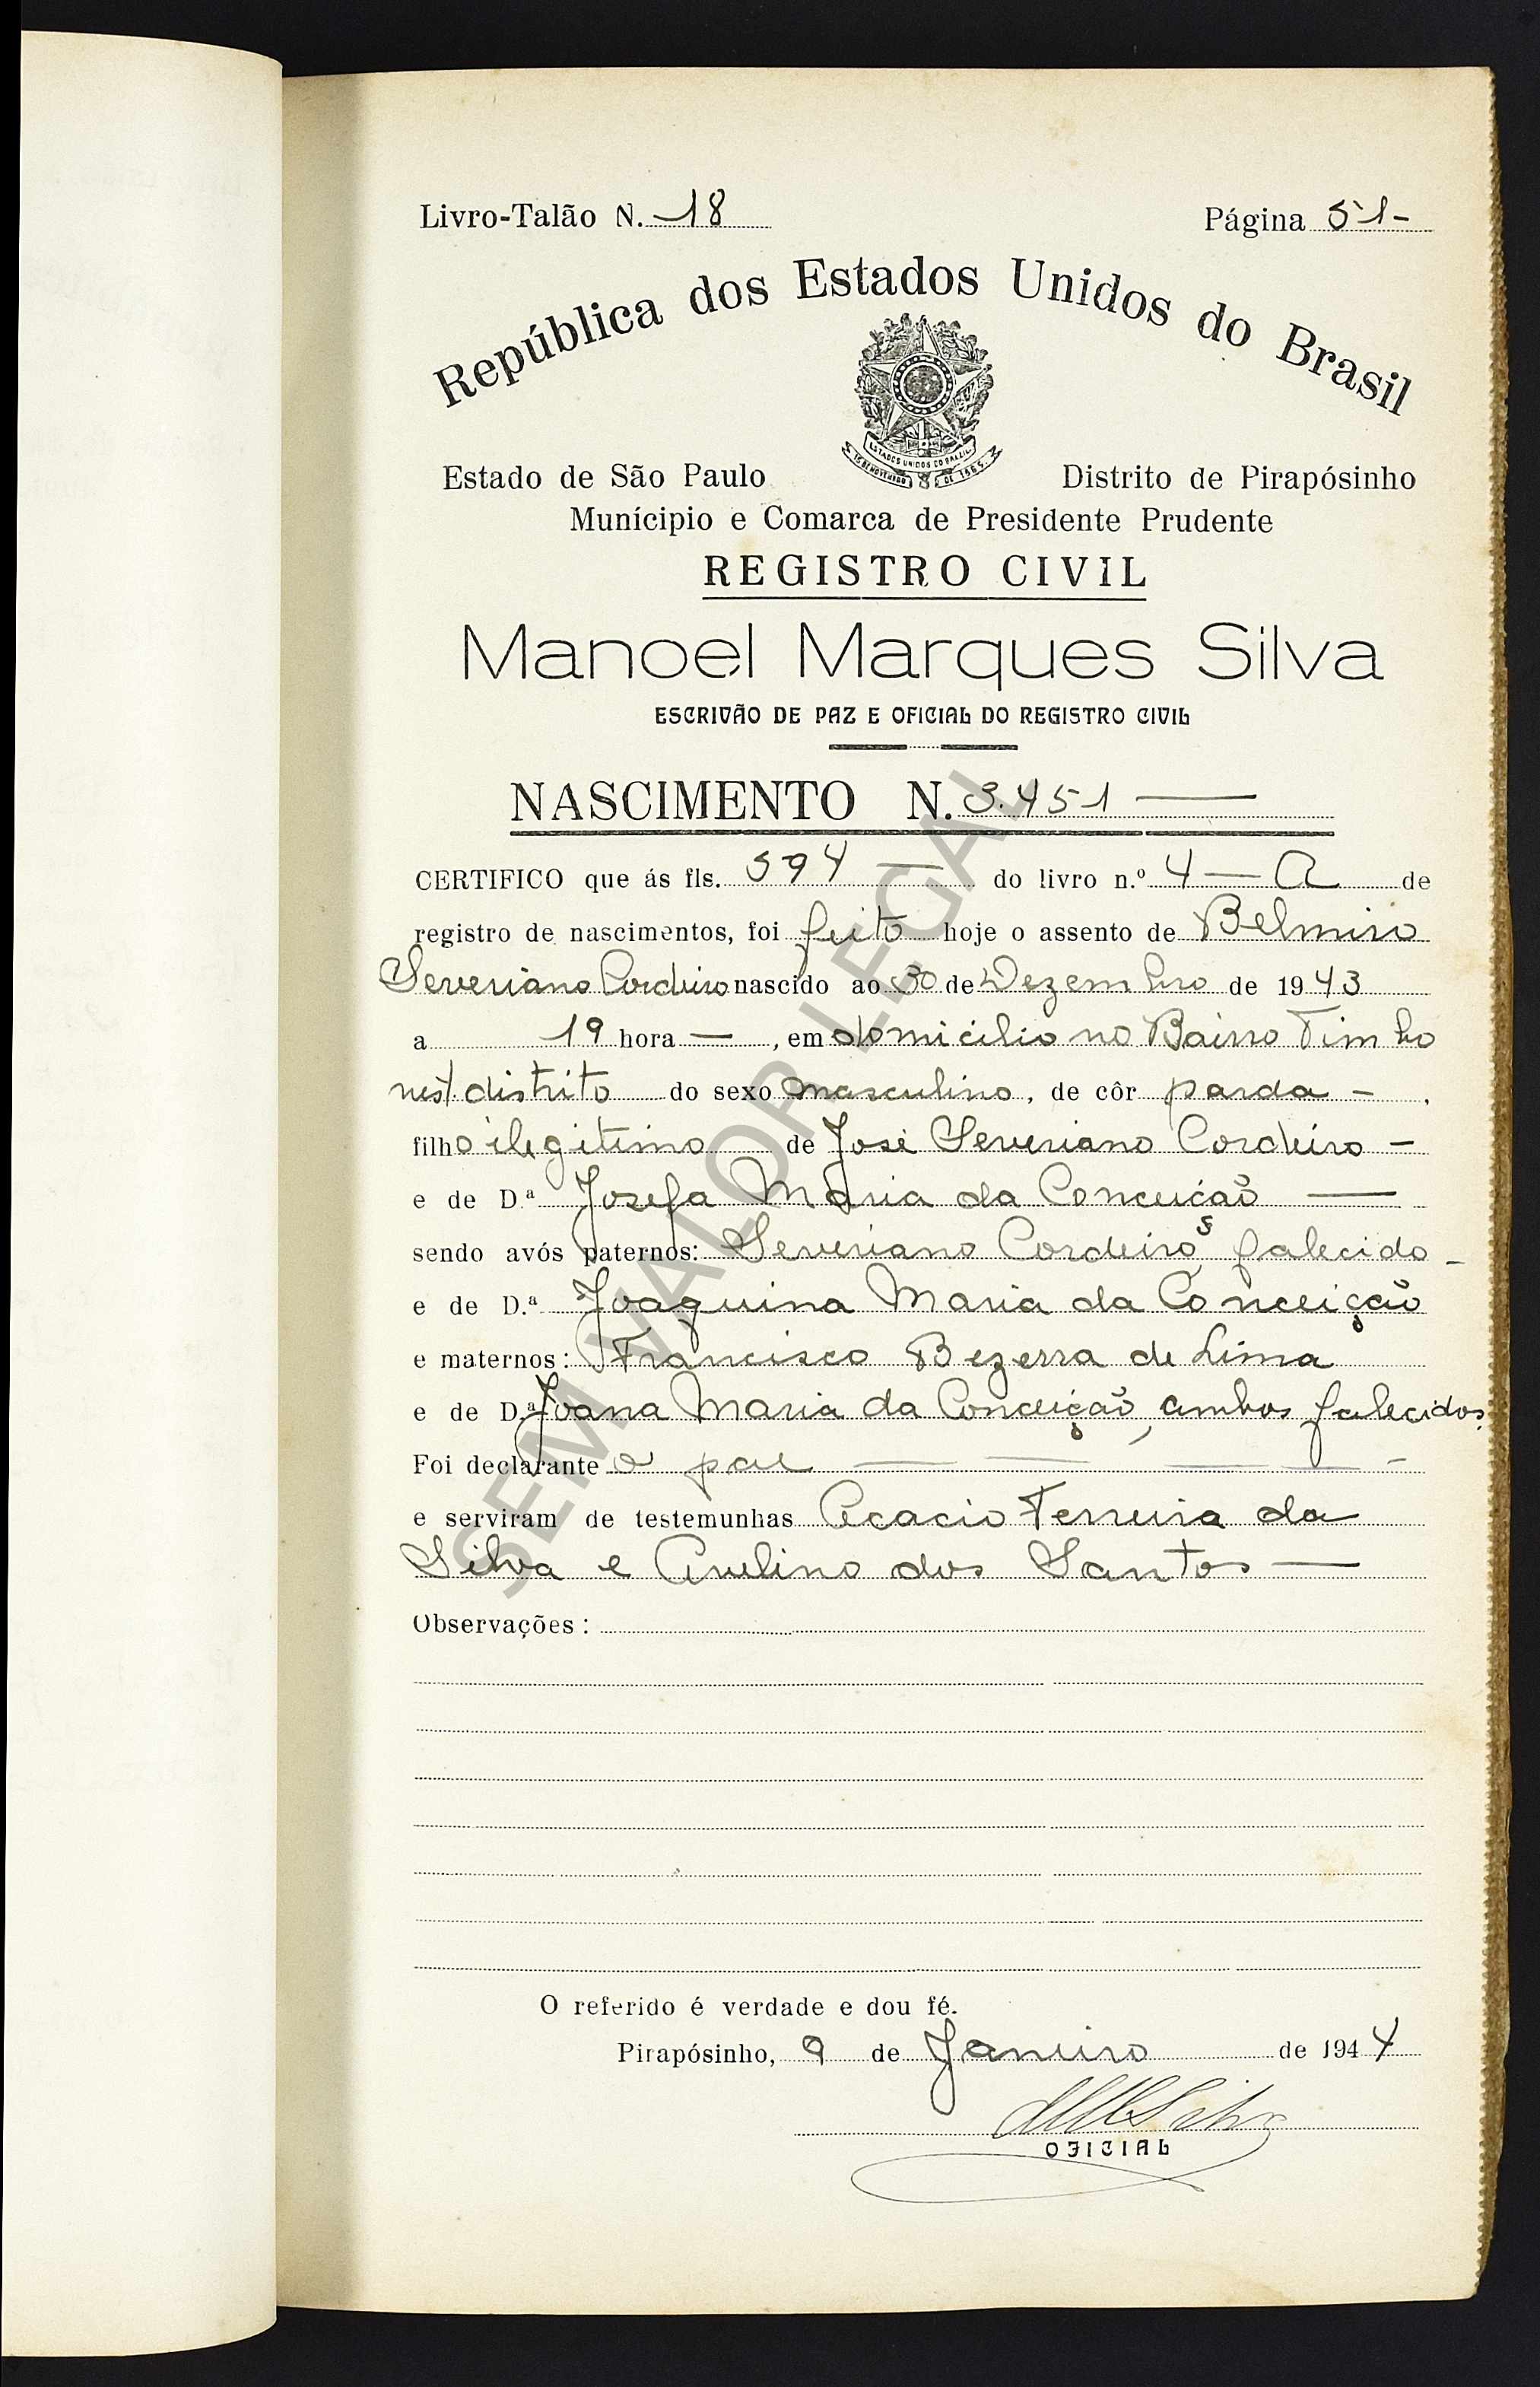 Livro-Talão N. 18 Página 51-
República dos Estados Unidos do Brasil
ESTADOS UNIDOS DO BRAZIL
15 DE NOVEMBRO DE 1889
Estado de São Paulo Distrito de Pirapósinho
Munícipio e Comarca de Presidente Prudente
REGISTRO CIVIL
Manoel Marques Silva
ESCRIVÃO DE PAZ E OFICIAL DO REGISTRO CIVIL
NASCIMENTO N. 3.451 —
CERTIFICO que ás fls. 594 — do livro n.º 4 — A de
registro de nascimentos, foi feito hoje o assento de Belmiro
Severiano Cordeiro nascido ao 30 de Dezembro de 1943
a 19 hora — , em domicilio no Bairro Timbo
nest. distrito do sexo masculino, de côr parda - .
filho ilegitimo de José Severiano Cordeiro -
e de D.ª Josefa Maria da Conceição —
sendo avós paternos: Severiano Cordeiro, falecido -
e de D.ª Joaquina Maria da Conceição
e maternos: Francisco Bezerra de Lima
e de D.ª Joana Maria da Conceição, ambos falecidos.
Foi declarante o pae — — — — -
e serviram de testemunhas Acacio Ferreira da
Silva e Avelino dos Santos —
Observações:
O referido é verdade e dou fé.
Pirapósinho, 9 de Janeiro de 1944
MMSilva
OFICIAL
SEM VALOR LEGAL